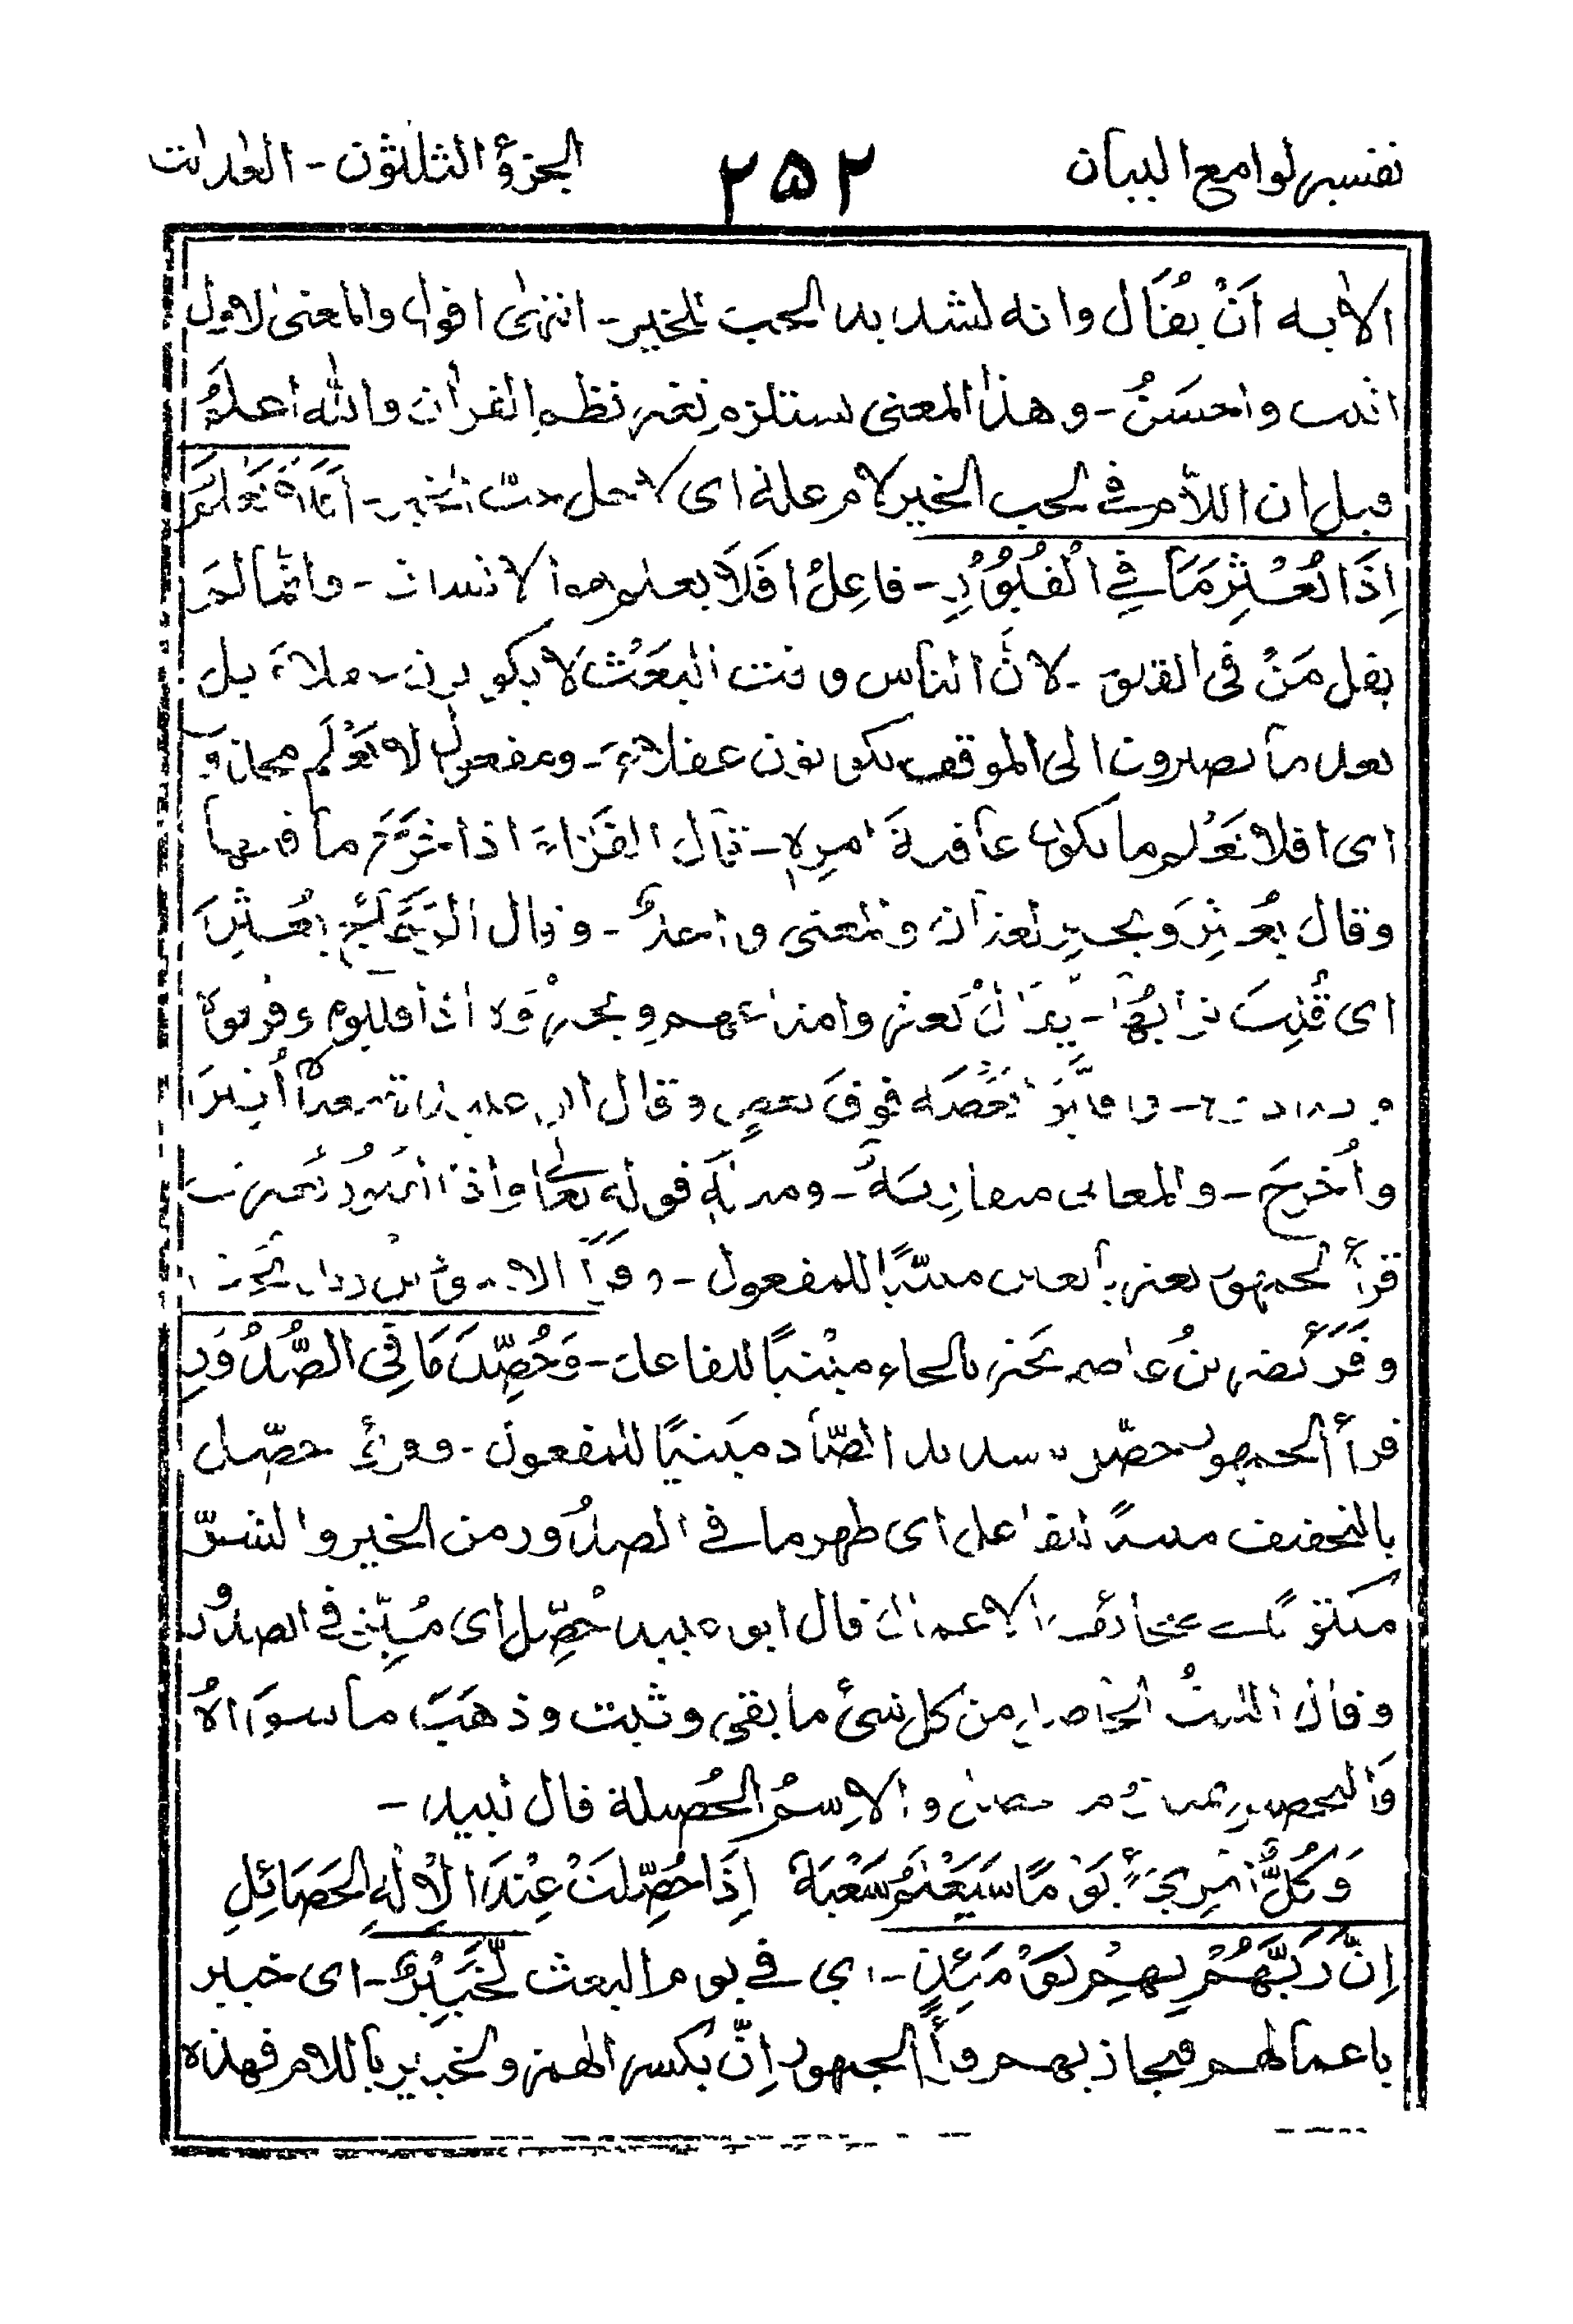 تفسير لوامع البيان ٢٥٢ الجزؤ الثلثون - العاديات
الاية اَنْ يُقَال وانه لشديد الحب للخير - انتهى اقول والمعنى الاول
انسب واحسَنُ - وهذا المعنى يستلزم تغير نظم القرآن والله اعلمُ
قيل ان اللام في لحب الخير لام علة اى لاجل حب الخير - اَفَلَا يَعْلَمُ
اِذَا بُعْثِرَ مَا فِي الْقُبُوْرِ - فاعِلُ افَلَا يعلم هو الانسان - وانما لم
يقل مَنْ فى القبور - لانَّ الناس وقت البَعْث لا يكونون عقلاء بل
بعد ما يصيرون الى الموقف يكونون عقلاء - ومفعول لا يَعْلَم محذوف
اى افلا يَعْلم ما يكون عاقبة امرهٖ - قال الفَرّاء اذا خَرَجَ ما فيها
وقال بُعْثِرَ وبحثر لغتان والمعنى واحدٌ - وقال الزجاج بُعْثِرَ
اى قُلِبَ ترابُها - يقال بعثر وامتاعهم وبحثروه اذا قلبوه وفرقوه
وبددوه - وقلبوا بَعْضَه فوق بعضٍ وقال ابو عبيدة بُعْثِرَ اُثِيرَ
واُخرِجَ - والمعانى متقاربة - ومنه قوله تعالى واذا القبور بُعثرت
قرأ الجمهور بعثر بالعين مبنيًّا للمفعول - وقرأ الاسود بن
وقرأ نصر بنُ عاصم بحثر بالحاء مبنيًّا للفاعل - وَحُصِّلَ مَا فِى الصُّدُوْرِ
قرأ الجمهور حصّل بتشديد الصّاد مبنيًّا للمفعول - وقرئ حصل
بالتخفيف مبنيًّا للفاعل اى ظهر ما في الصدُور من الخير والشرّ
الاعمال قال ابو عبيدة حُصِّل اى مُيِّز فى الصدور
وقال الليثُ الحاصل من كل شئ ما بقى وثبت وذهَبَ ما سواه
والتحصيل تمييز ما يحصل والاِسمُ الحُصيلة قال لبيد -
وَكُلُّ امْرِئٍ يَوْمًا سَيَعْلَمُ سَعْيَهٗ اِذَا حُصِّلَتْ عِنْدَ الْاِلٰهِ الحَصَائِلِ
اِنَّ رَبَّهُمْ بِهِمْ يَوْمَئِذٍ - اى في يوم البعث لَّخَبِيْرٌ - اى خبير
باعمالهم فيجازيهم قرأ الجمهور اِنَّ بكسر الهمزه ولخبير باللام فهذه